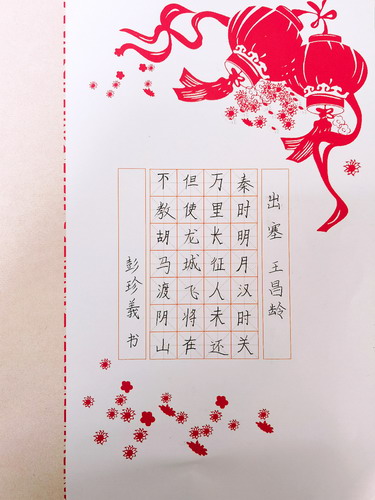 出塞 王昌龄
秦时明月汉时关
万里长征人未还
但使龙城飞将在
不教胡马渡阴山
彭珍义书